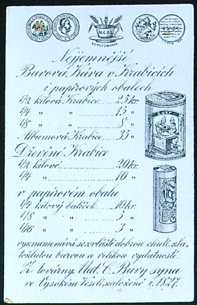 Nejjemnější
Burová Káva v Krabicích
i papírových obalech
1/2 kilová Krabice 25 kr.
1/4 " " 15 "
1/8 " " 8 "
Albumová Krabice 35 "
Dřevěné Krabice
1/2 kilové 20 kr.
1/4 " 10 "
v papírovém obalu
1/4 kilový balíček 10 kr.
1/8 " " 5 "
1/16 " " 3 "
vyznamenává se zvláště dobrou chutí, zla-
tožlutou barvou a velikou vydatností.
Z továrny
syna
ve Vysokém založené r. 1827.